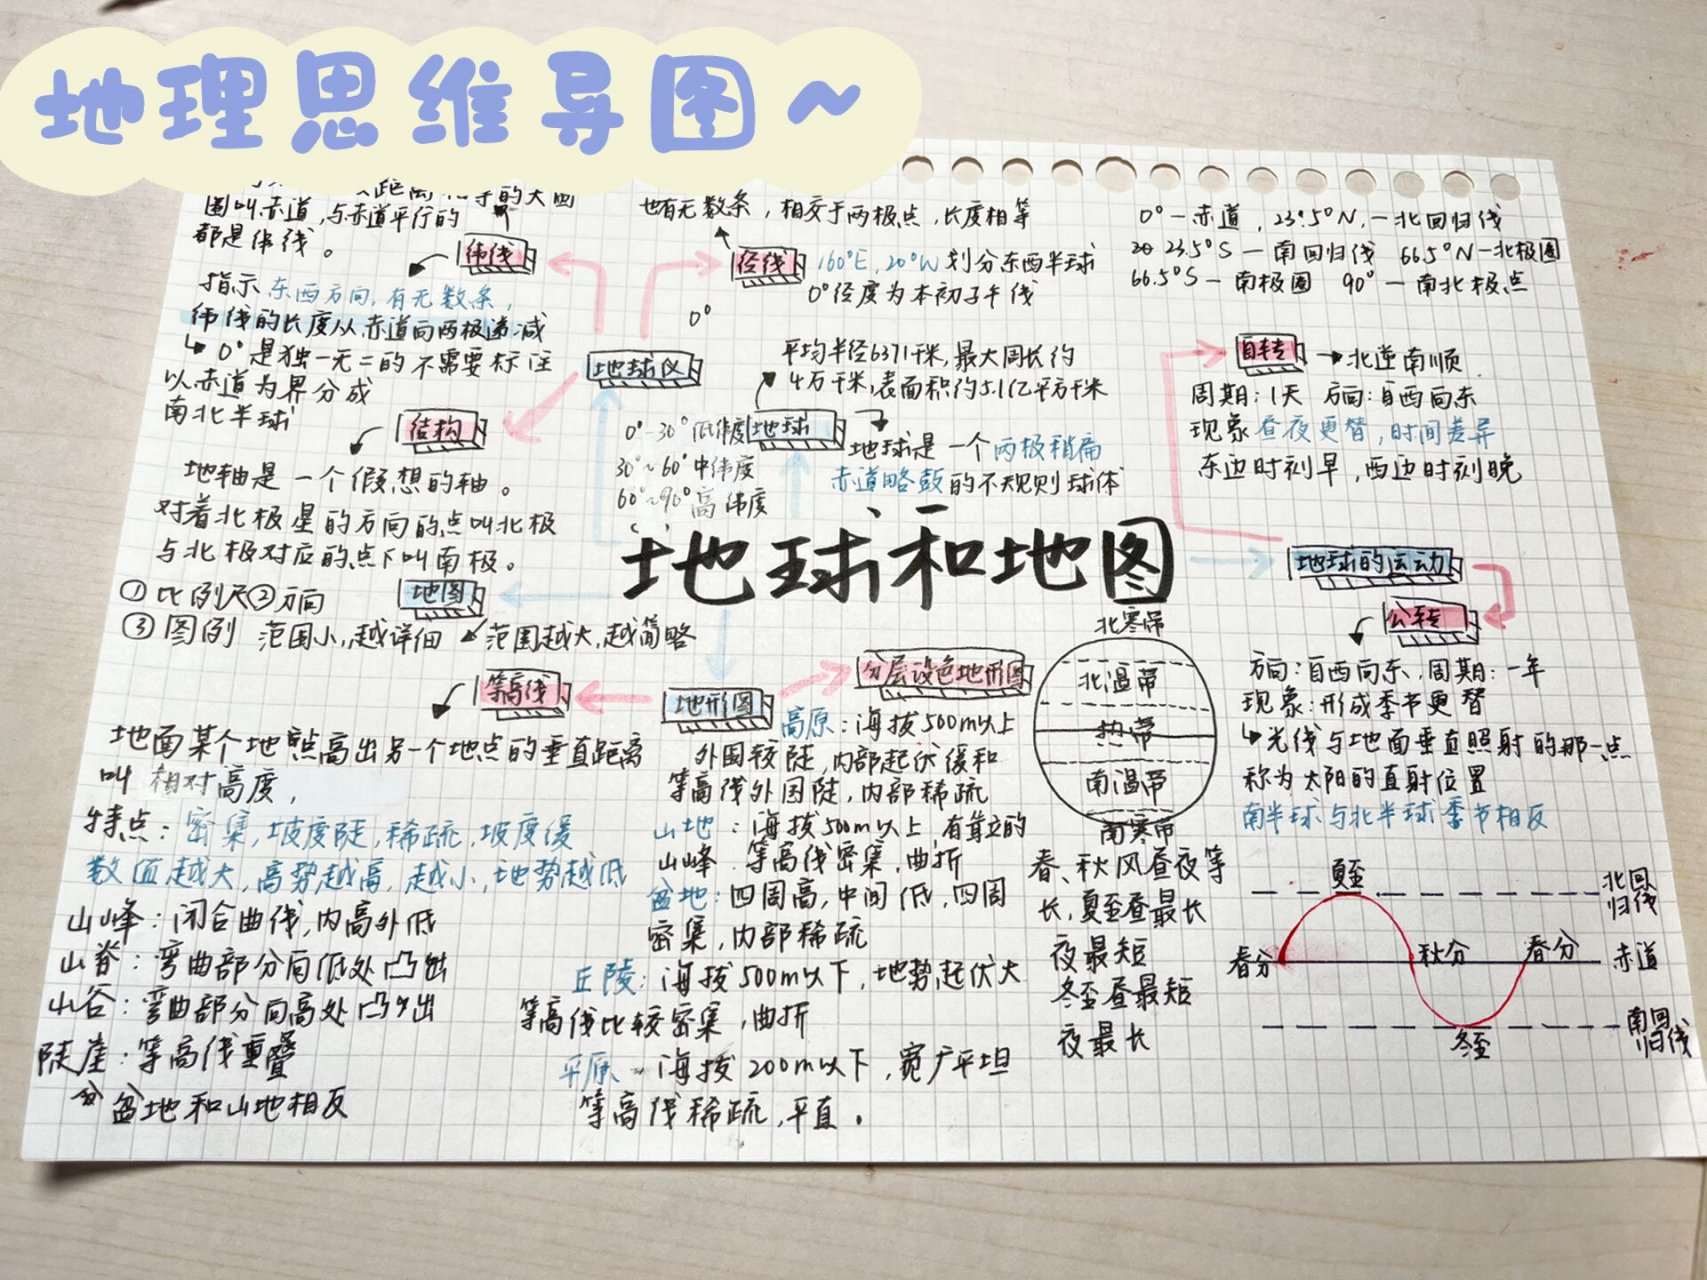 地理思维导图~
距离相等的大圆
圈叫赤道,与赤道平行的
都是纬线。
纬线
指示东西方向,有无数条,
纬线的长度从赤道向两极递减
↳0°是独一无二的不需要标注
以赤道为界分成
南北半球
结构
地轴是一个假想的轴。
对着北极星的方向的点叫北极
与北极对应的点下叫南极。
也有无数条,相交于两极点,长度相等
经线
160°E,20°W划分东西半球
0°经度为本初子午线
0°
地球仪
平均半径6371千米,最大周长约
4万千米,表面积约5.1亿平方千米
地球
0°-30°低纬度
30°~60°中纬度
60°~90°高纬度
地球是一个两极稍扁
赤道略鼓的不规则球体
0°—赤道,23.5°N,—北回归线
23.5°S—南回归线 66.5°N—北极圈
66.5°S—南极圈 90°—南北极点
自转
北逆南顺
周期:1天 方向:自西向东
现象昼夜更替,时间差异
东边时刻早,西边时刻晚
地球和地图
地球的运动
公转
方向:自西向东,周期:一年
现象:形成季节更替
↳光线与地面垂直照射的那一点
称为太阳的直射位置
南半球与北半球季节相反
地图
①比例尺②方向
③图例 范围小,越详细
范围越大,越简略
等高线
地面某个地点高出另一个地点的垂直距离
叫相对高度,
特点:密集,坡度陡,稀疏,坡度缓
数值越大,高势越高,越小,地势越低
山峰:闭合曲线,内高外低
山脊:弯曲部分向低处凸出
山谷:弯曲部分向高处凸出
陡崖:等高线重叠
盆地和山地相反
地形图
分层设色地形图
高原:海拔500m以上
外围较陡,内部起伏缓和
等高线外围陡,内部稀疏
山地:海拔500m以上,有耸立的
山峰.等高线密集,曲折
盆地:四周高,中间低,四周
密集,内部稀疏
丘陵:海拔500m以下,地势起伏大
等高线比较密集,曲折
平原—海拔200m以下,宽广平坦
等高线稀疏,平直。
北寒带
北温带
热带
南温带
南寒带
春、秋风昼夜等
长,夏至昼最长
夜最短
冬至昼最短
夜最长
夏至
北回
归线
春分
秋分
春分
赤道
冬至
南回
归线